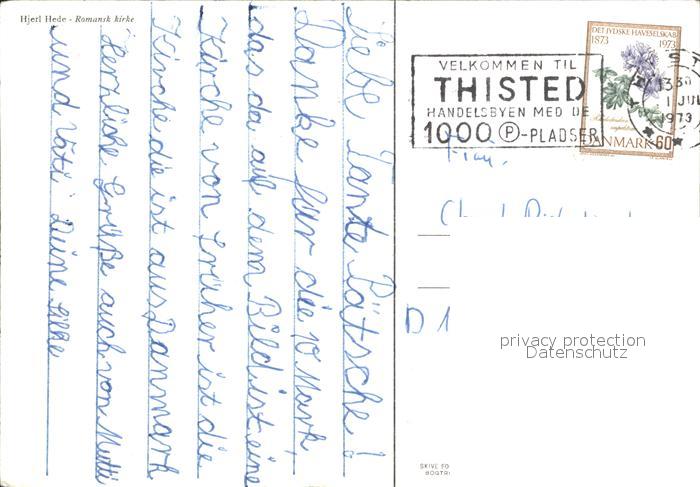 Hjerl Hede - Romansk kirke
Liebe Tante Pätsche!
Danke für die 10 Mark
das da auf dem Bild ist eine
Kirche von Früher ist die
Kirche die ist aus Danmark
Herzliche Grüße auch von Mutti
und Vati Deine Silke
DET JYDSKE HAVESELSKAB
1873 1973
DANMARK 60
VELKOMMEN TIL
THISTED
HANDELSBYEN MED DE
1000 P-PLADSER
1973
Frau
D 1
privacy protection
Datenschutz
SKIVE FO
BOGTR